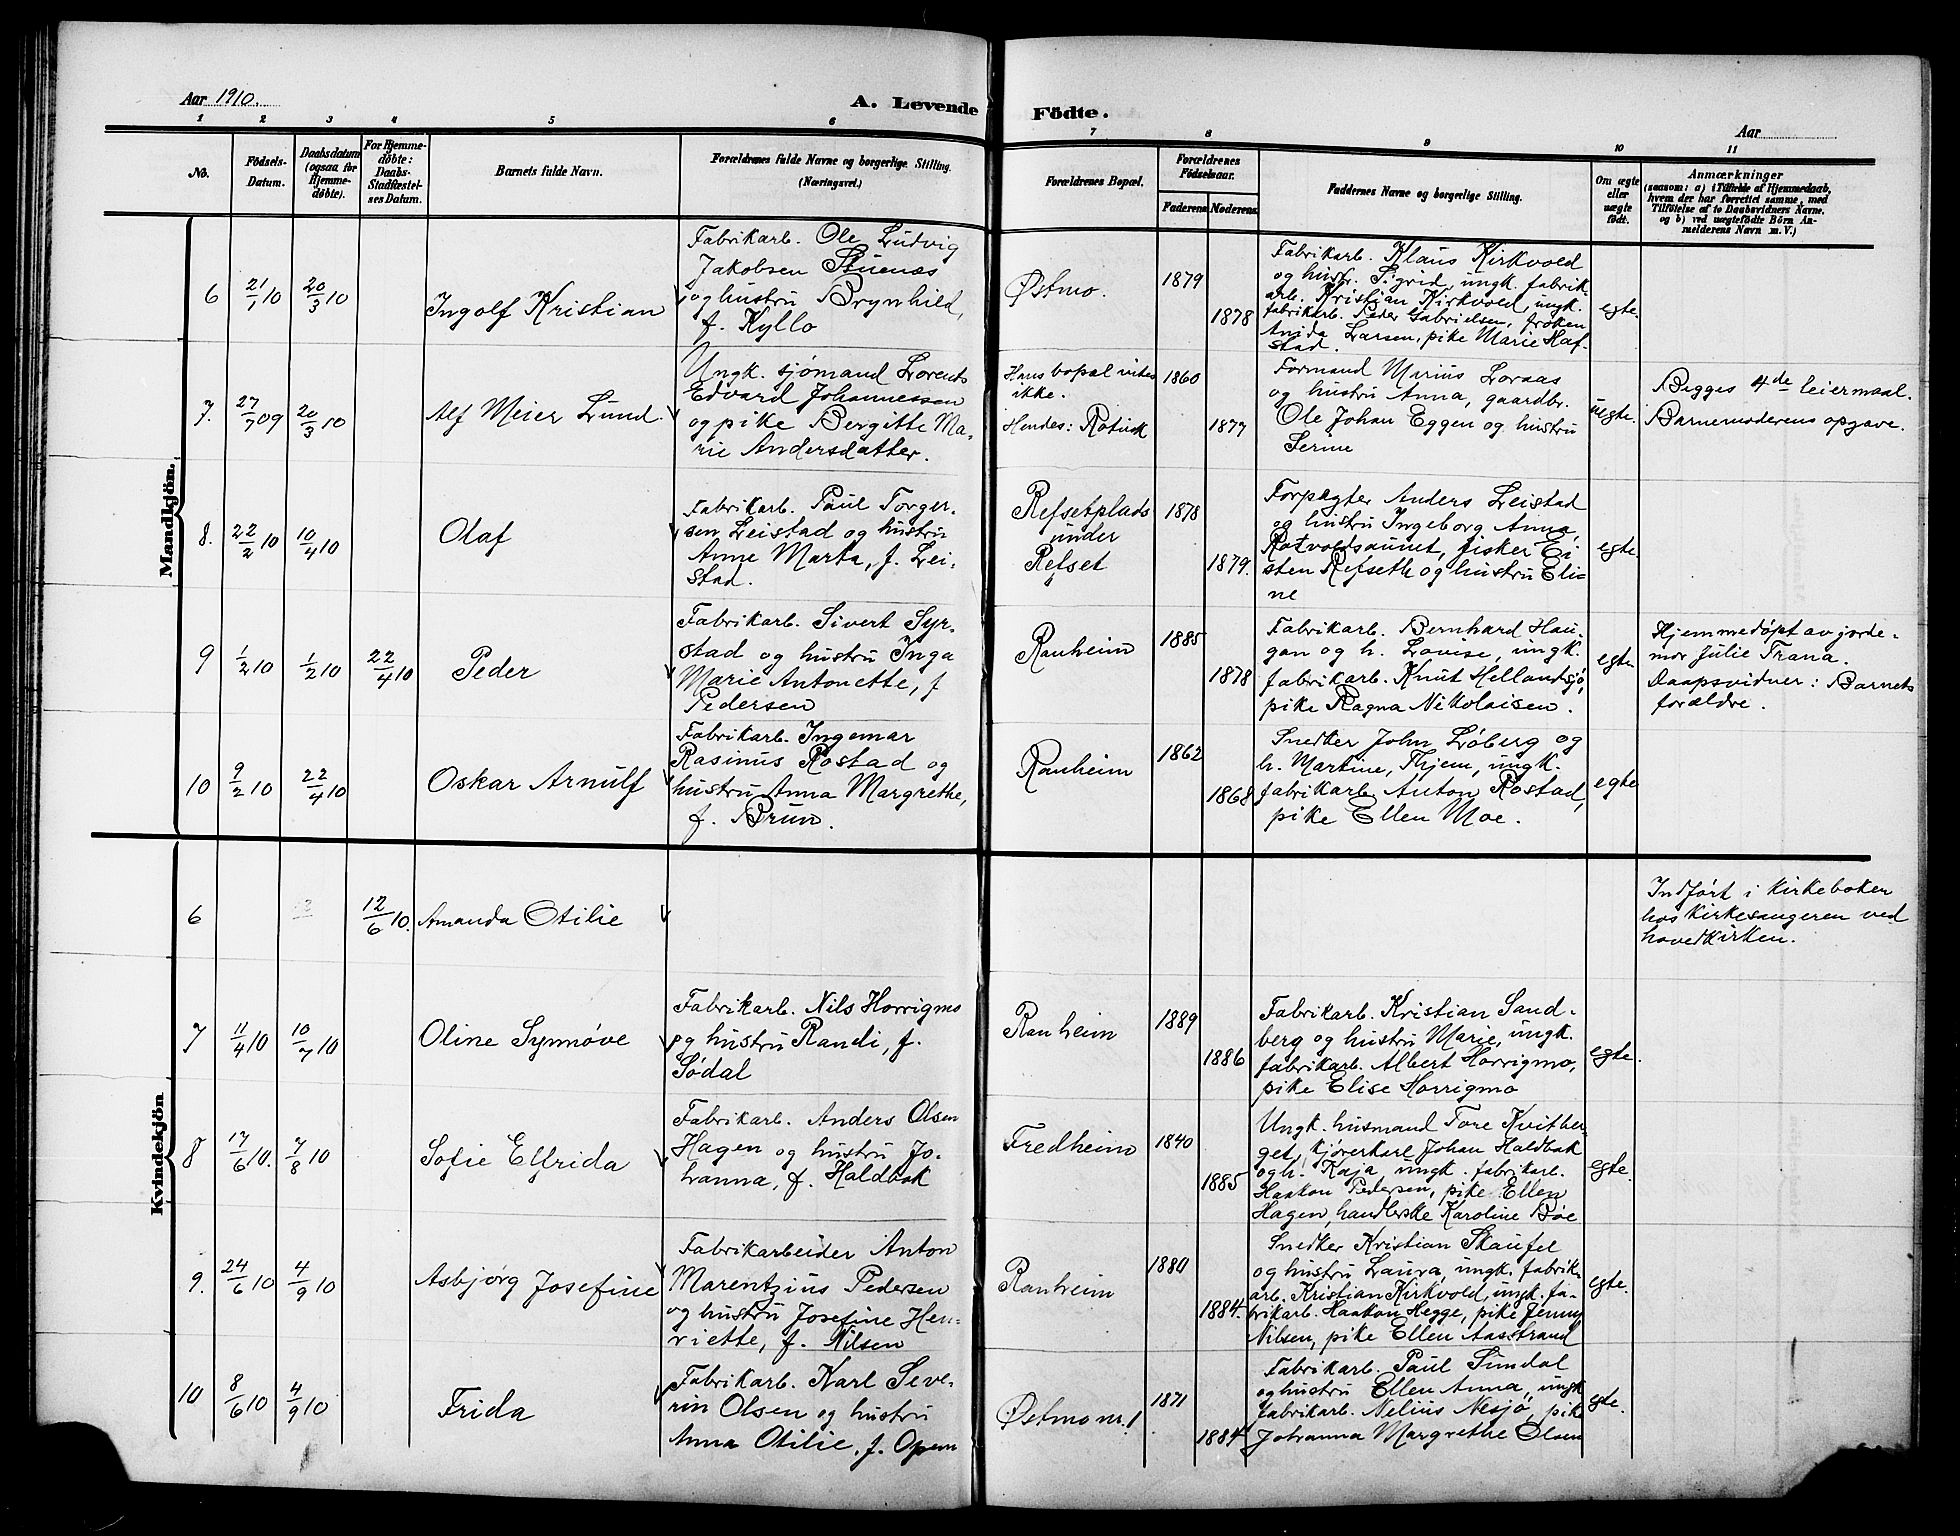 Aar 1910.
A. Levende Födte.
Aar
1 2 3 4 5 6 7 8 9 10 11
No.
Födsels-Datum.
Daabsdatum (ogsaa for Hjemmedøbte).
For Hjemmedøbte: Daabs-Stadfæstelses Datum.
Barnets fulde Navn.
Forældrenes fulde Navne og borgerlige Stilling.
(Næringsvei.)
Forældrenes Bopæl.
Forældrenes Fødselsaar.
Faderens Moderens
Faddernes Navne og borgerlige Stilling.
Om ægte eller uægte født.
Anmærkninger
(saasom: a) i Tilfælde af Hjemmedaab,
hvem der har forrettet samme, med
Tilföielse af to Daabsvidners Navne,
og b) ved uægtefødte Börn An-
melderens Navn m. V.)
Mandkjön.
6 21/1 10 20/3 10 Ingolf Kristian
Fabrikarb. Ole Ludvig
Jakobsen Stuenæs
og hustru Brynhild,
f. Kyllo
Østmo. 1879 1878
Fabrikarb. Klaus Kirkvold
og hustr. Sigrid, ungk. fabrik
arb. Kristian Kirkvold, ungk.
fabrikarb. Peder Gabrielsen, frøken
Anida Larsen, pike Marie Haf-
stad.
egte.
7. 27/7 09 20/3 10 Alf Meier Lund.
Ungk. sjømand Lorents
Edvard Johannessen
og pike Bergitte Ma-
rie Andersdatter.
Hans bopæl vites
ikke.
Hendes: Rotvik
1860 1877
Formand Marius Loraas
og hustru Anna, gaardbr.
Ole Johan Eggen og hustru
Serine
uegte.
Begges 4de leiermaal.
Barnemoderens opgave.
8. 22/2 10 10/4 10 Olaf
Fabrikarb. Paul Torger-
sen Leistad og hustru
Anne Marta, f. Lei-
stad.
Refsetplads
under
Refset
1878 1879.
Forpagter Anders Leistad
og hustru Ingeborg Anna,
Rotvoldsaunet, fisker Ei-
sten Refseth og hustru Eli-
ne
egte.
9 1/2 10 1/2 10 22/4 10 Peder
Fabrikarb. Sivert Syr-
stad og hustru Inga
Marie Antonette, f
Pedersen
Ranheim 1885 1878
Fabrikarb. Bernhard Hau-
gan og h. Lovise, ungk.
fabrikarb. Knut Hellandsjø,
pike Ragna Nikolaisen.
egte
Hjemmedøpt av jorde-
mor Julie Trana.
Daapsvidner: Barnets
forældre.
10 9/2 10 22/4 10 Oskar Arnulf
Fabrikarb. Ingemar
Rasinus Rostad og
hustru Anna Margrethe,
f. Brun.
Ranheim 1862 1868
Snedker John Løberg og
h. Martine, Thjem, ungk.
fabrikarb. Anton Rostad,
pike Ellen Moe.
egte
Kvindekjön
6 12/6 10. Amanda Otilie
Indført i kirkeboken
hos kirkesangeren ved
hovedkirken.
7 11/4 10 10/7 10 Oline Synnøve
Fabrikarb. Nils Horrigmo
og hustru Randi, f.
Sødal
Ranheim 1889 1886
Fabrikarb. Kristian Sand-
berg og hustru Marie, ungk.
fabrikarb. Albert Horrigmo,
pike Elise Horrigmo
egte.
8 17/6 10. 7/8 10 Sofie Elfrida
Fabrikarb. Anders Olsen
Hagen og hustru Jo-
hanna, f. Haldbak
Fredheim 1840 1885
Ungk. husmand Tore Kvitber-
get, kjørerkarl Johan Haldbak
og h. Kaja ungk. fabrikarb.
Haakon Pedersen, pike Ellen
Hagen, handlerske Karoline Bøe
egte.
9. 24/6 10 4/9 10 Asbjørg Josefine
Fabrikarbeider Anton
Marentzius Pedersen
og hustru Josefine Hen-
riette, f. Nilsen
Ranheim 1880 1884.
Snedker Kristian Skaufel
og hustru Laura, ungk. fabrik-
arb. Kristian Kirkvold, ungk. fa-
brikarb. Haakon Hegge, pike Jenny
Nilsen, pike Ellen Aasstrand
egte.
10 8/6 10 4/9 10 Frida
Fabrikarb. Karl Seve-
rin Olsen og hustru
Anna Otilie, f. Open
Østmo nr. 1 1871 1884
Fabrikarb. Paul Simdal
og hustru Ellen Anna, ungk
fabrikarb. Nelius Nesjø, pike
Johanna Margrethe Olsen
egte.